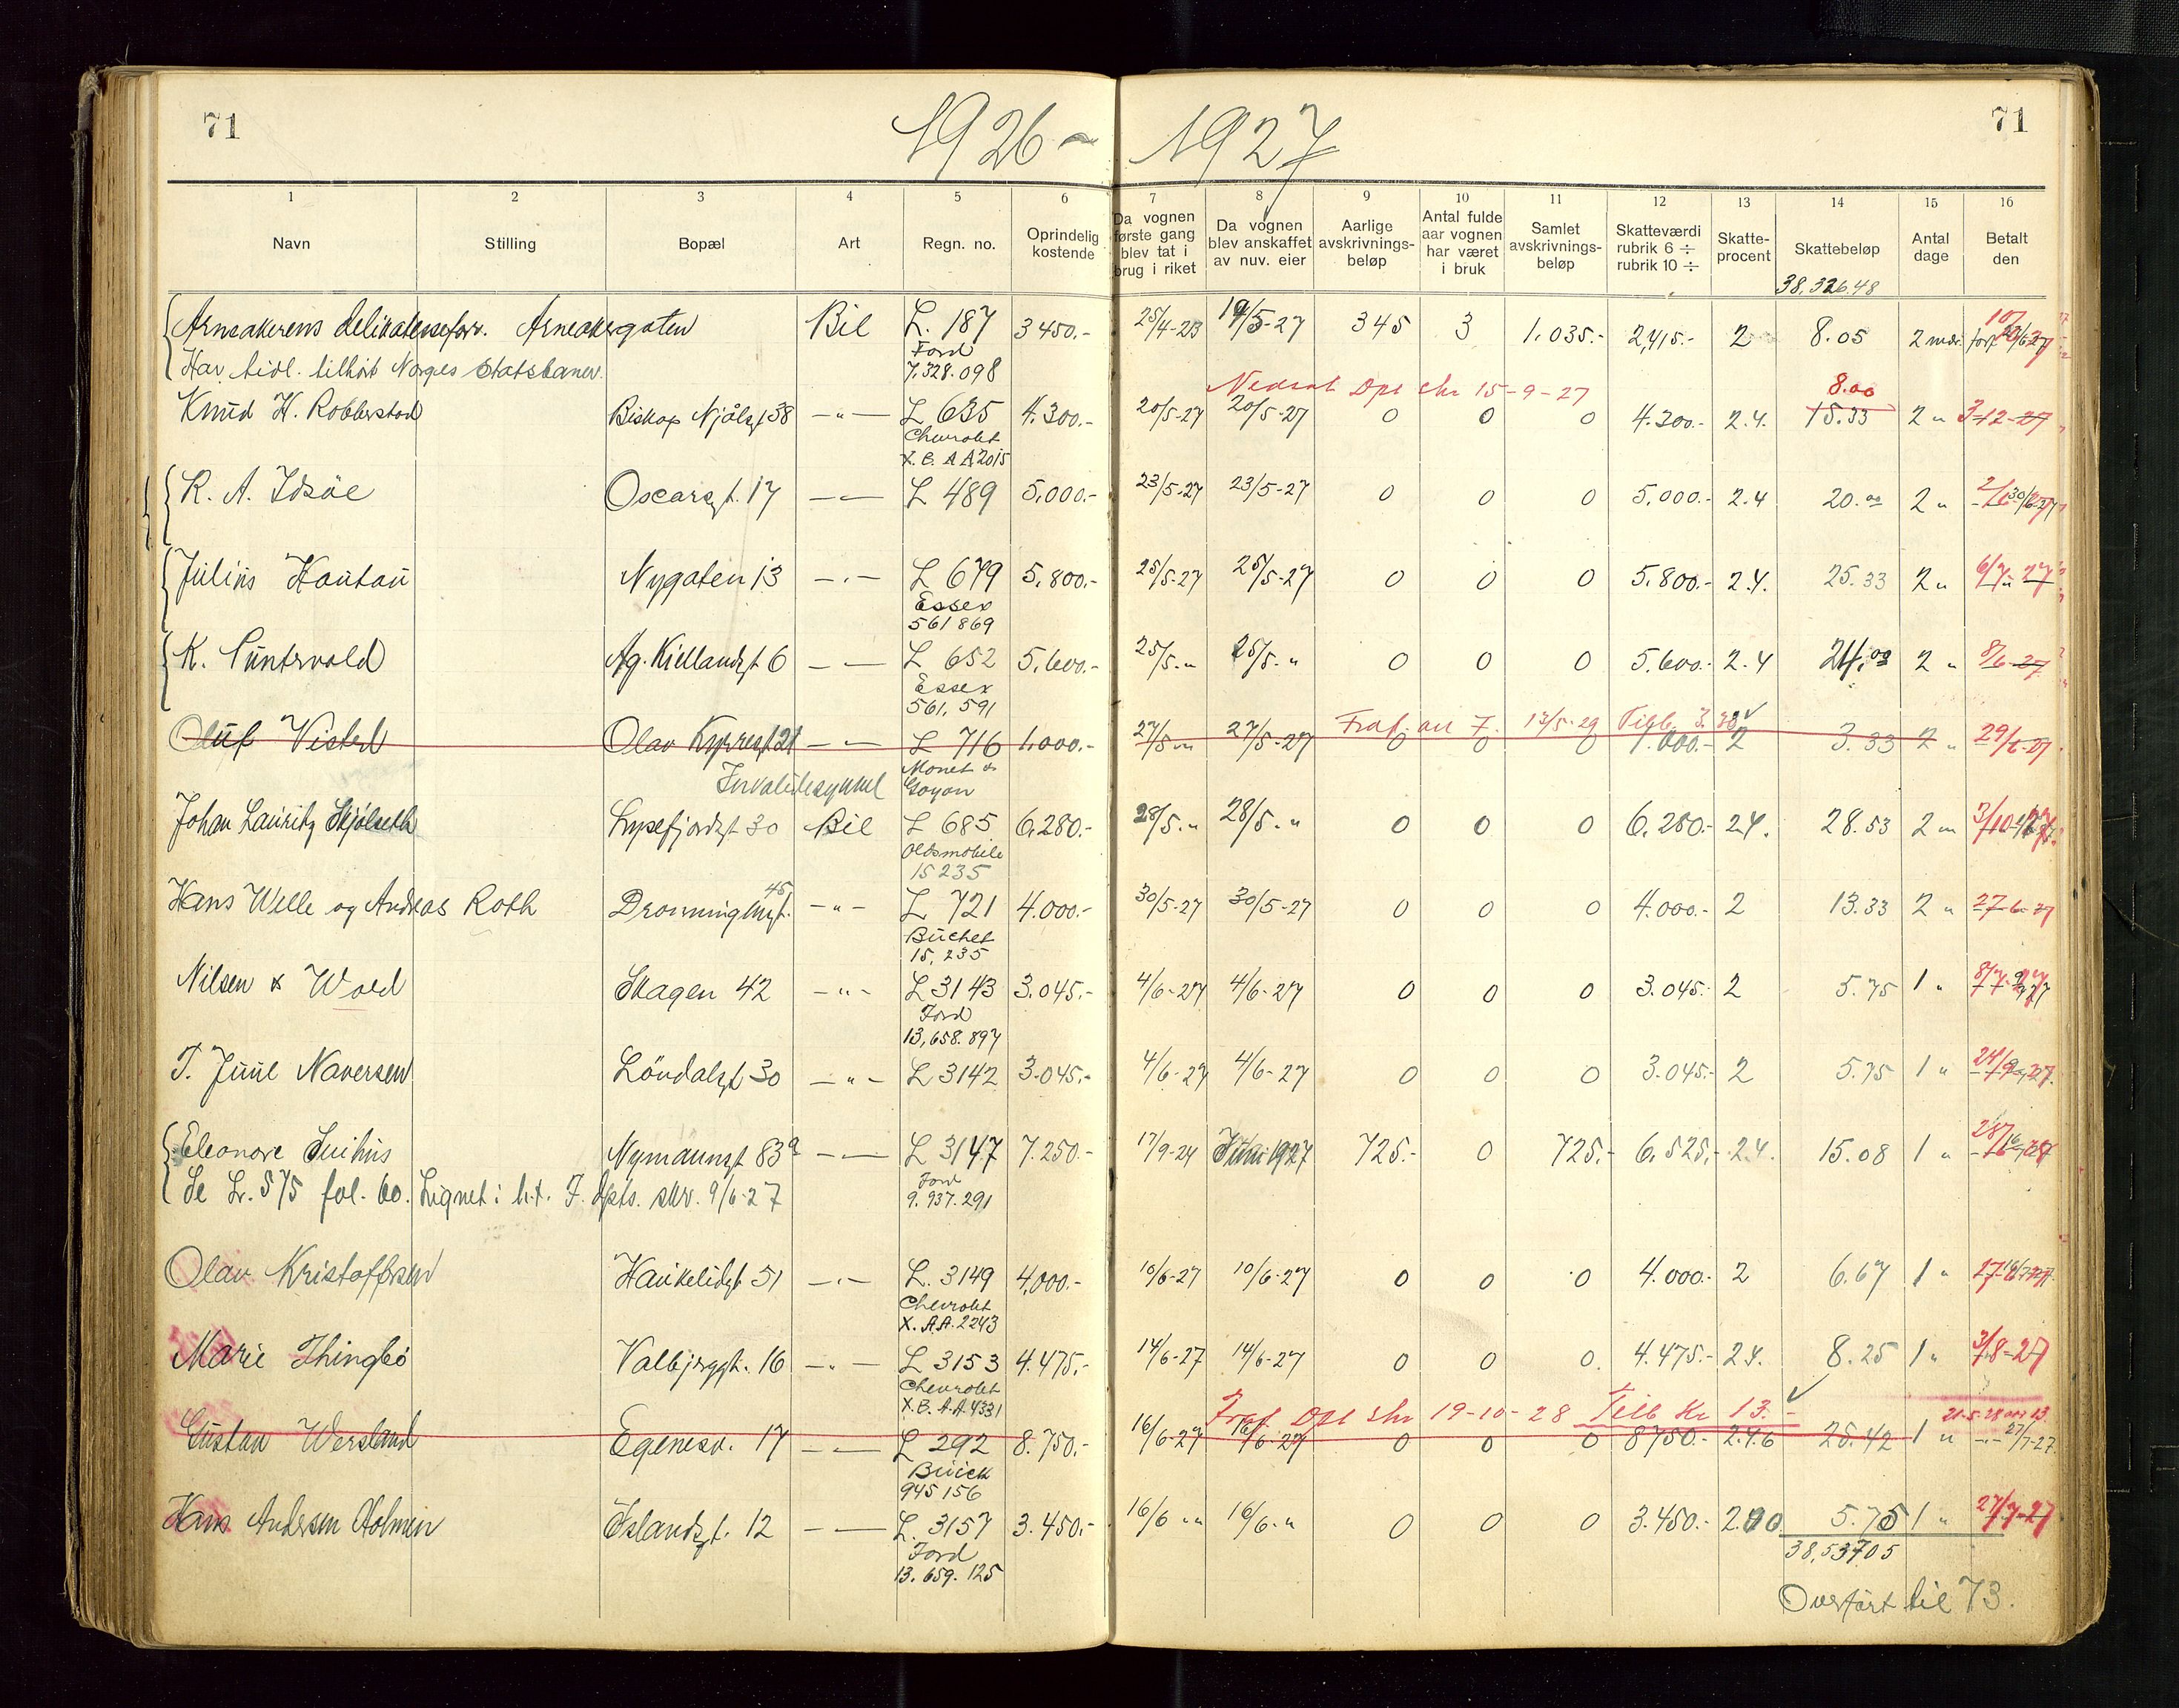 71 1926 - 1927 71
1 2 3 4 5 6 7 8 9 10 11 12 13 14 15 16
Navn Stilling Bopæl Art Regn. no. Oprindelig kostende Da vognen første gang blev tat i brug i riket Da vognen blev anskaffet av nuv. eier Aarlige avskrivnings-beløp Antal fulde aar vognen har været i bruk Samlet avskrivnings-beløp Skatteværdi rubrik 6 ÷ rubrik 10 ÷ Skatte-procent Skattebeløp Antal dage Betalt den
38,326.48
Arneakerens delikatesseforr. Arneakergaten Bil L. 187 3450.- 25/4-23 19/5-27 345 3 1.035.- 2,415.- 2 8.05 2 mdr.
Ford
Har tidl. tilhört Norges Statsbaner. 7.328.098
Nedsat Dpt skr 15-9-27 8.00
Knud H. Robberstad Biskop Njålsgt 38 -"- L 635 4.300.- 20/5-27 20/5-27 0 0 0 4.300.- 2.4. 15.33 2 " 3-12-27
Chevrolet
X.B. A A 2015
R. A. Idsöe Oscarsgt. 17 -"- L 489 5.000.- 23/5-27 23/5-27 0 0 0 5.000.- 2.4 20.00 2 "
Julius Hautau Nygaten 13 -"- L 679 5.800.- 25/5-27 25/5-27 0 0 0 5.800.- 2.4. 25.33 2 " 6/7-27
Essex
561869
K. Puntervold Ag. Kiellandsgt 6 -"- L 652 5.600.- 25/5-" 25/5-" 0 0 0 5.600.- 2.4 24.00 2 " 8/6-27
Essex
561.591
Fraf. 13/5-29 Tilb. 3.33
Oluf Visted Olav Kyrresgt 21 -"- L 716 1.000.- 27/5-" 27/5-27 0 0 0 1.000.- 2 3.33 2 " 29/6-27
Monet &
Invalidesykkel Goyon
Johan Lauritz Skjölseth Lysefjordsgt 30 Bil L 685 6.280.- 28/5-" 28/5-" 0 0 0 6.280.- 2.4. 28.53 2 "
Oldsmobile
15235
Hans Welle og Andreas Roth Dronningensgt. 45 -"- L 721 4.000.- 30/5-27 30/5-27 0 0 0 4.000.- 2 13.33 2 " 27-6-27
Buchet
15,235
Nilsen & Wold Skagen 42 -"- L 3143 3.045.- 4/6-27 4/6-27 0 0 0 3.045.- 2 5.75 1 "
Ford
13,658.897
T. Juul Naversen Lövdalsgt 30 -"- L 3142 3.045.- 4/6-27 4/6-27 0 0 0 3.045.- 2 5.75 1 " 24/9-27
Eleonore Suihus Nymannsgt 83a -"- L 3147 7.250.- 17/9-24 Juni 1927 725.- 0 725.- 6.525.- 2.4. 15.08 1 "
Ford
Se L. 575 fol. 60. Lignet i h.t. F. dpts. skr. 9/6-27 9.937.291
Olav Kristoffersen Haukelidgt 51 -"- L. 3149 4.000.- 10/6-27 10/6-27 0 0 0 4.000.- 2 6.67 1 "
Chevrolet
X. A.A. 2243
Marie Thingbö Valbjerggt. 16 -"- L 3153 4.475.- 14/6-27 14/6-27 0 0 0 4.475.- 2.4. 8.25 1 " 3/8-27
Chevrolet
X.B. A.A. 4331
Fraf. Dpt skr 19-10-28 Tilb Kr 13.-
Gustav Wersland Egenesv. 17 -"- L 292 8.750.- 16/6-27 16/6-27 0 0 0 8750.- 2.4.6 25.42 1 " 27/7-27
Buick
945156
Hans Andersen Holmen Islandsgt. 12 -"- L. 3157 3.450.- 16/6-" 16/6-" 0 0 0 3.450.- 2.00 5.75 1 " 27/7-27
Ford 38,537.05
13.659.125
Overfört til 73.